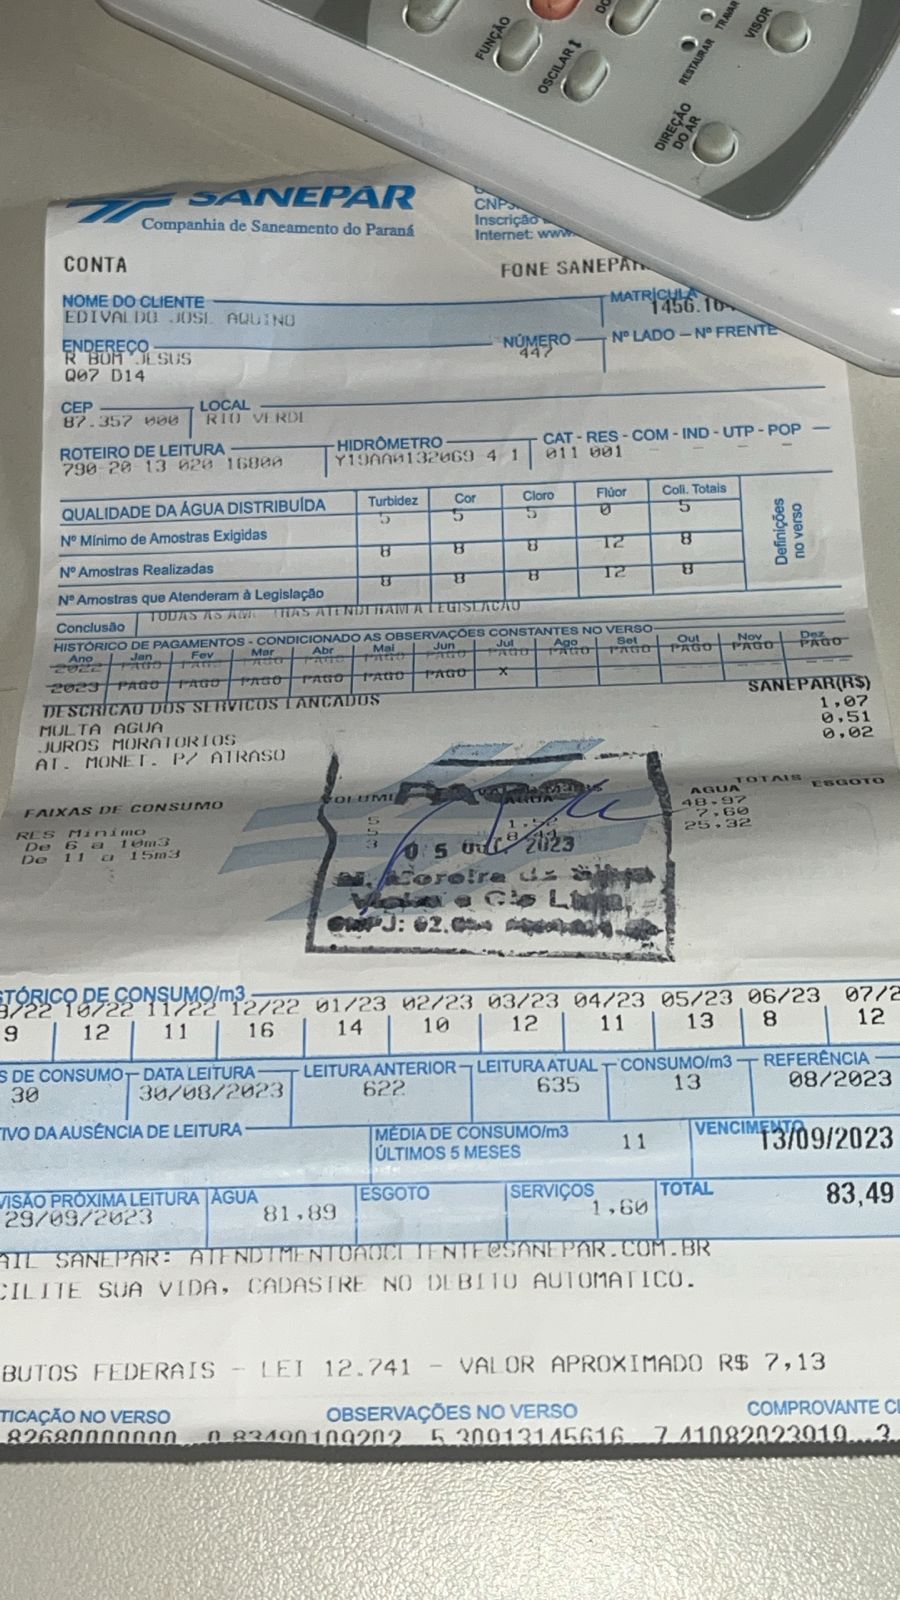 FUNÇÃO
OSCILAR
RESTAURAR
TRAVAR
VISOR
DIREÇÃO
DO AR
SANEPAR
Companhia de Saneamento do Paraná
Inscrição
Internet: www.
CONTA
FONE SANEPAR
NOME DO CLIENTE
EDIVALDO JOSE AQUINO
MATRÍCULA
1456.10
ENDEREÇO
R BOM JESUS
Q07 D14
NÚMERO
447
Nº LADO - Nº FRENTE
CEP
87.357 000
LOCAL
RIO VERDE
ROTEIRO DE LEITURA
790 20 13 020 16800
HIDRÔMETRO
Y19AA0132069 4 1
CAT - RES - COM - IND - UTP - POP
011 001
QUALIDADE DA ÁGUA DISTRIBUÍDA Turbidez Cor Cloro Flúor Coli. Totais
Nº Mínimo de Amostras Exigidas 5 5 5 0 5
Nº Amostras Realizadas 8 8 8 12 8
Nº Amostras que Atenderam à Legislação 8 8 8 12 8
Definições
no verso
Conclusão TODAS AS AMOSTRAS ATENDERAM A LEGISLACAO
HISTÓRICO DE PAGAMENTOS - CONDICIONADO AS OBSERVAÇÕES CONSTANTES NO VERSO
Ano Jan Fev Mar Abr Mai Jun Jul Ago Set Out Nov Dez
2022 PAGO PAGO PAGO PAGO PAGO PAGO PAGO PAGO PAGO PAGO PAGO PAGO
2023 PAGO PAGO PAGO PAGO PAGO PAGO X
DESCRICAO DOS SERVICOS LANCADOS SANEPAR(R$)
MULTA AGUA 1,07
JUROS MORATORIOS 0,51
AT. MONET. P/ ATRASO 0,02
FAIXAS DE CONSUMO VOLUME AGUA TOTAIS AGUA ESGOTO
RES Minimo 48,97
De 6 a 10m3 5 1,52 7,60
De 11 a 15m3 3 8,44 25,32
0 5 OUT. 2023
HISTÓRICO DE CONSUMO/m3
10/22 11/22 12/22 01/23 02/23 03/23 04/23 05/23 06/23 07/2
9 12 11 16 14 10 12 11 13 8 12
S DE CONSUMO DATA LEITURA LEITURA ANTERIOR LEITURA ATUAL CONSUMO/m3 REFERÊNCIA
30 30/08/2023 622 635 13 08/2023
IVO DA AUSÊNCIA DE LEITURA
MÉDIA DE CONSUMO/m3
ÚLTIMOS 5 MESES
11
VENCIMENTO
13/09/2023
VISÃO PRÓXIMA LEITURA ÁGUA ESGOTO SERVIÇOS TOTAL
29/09/2023 81,89 1,60 83,49
AIL SANEPAR: ATENDIMENTOAOCLIENTE@SANEPAR.COM.BR
CILITE SUA VIDA, CADASTRE NO DEBITO AUTOMATICO.
BUTOS FEDERAIS - LEI 12.741 - VALOR APROXIMADO R$ 7,13
TICAÇÃO NO VERSO OBSERVAÇÕES NO VERSO COMPROVANTE CL
82680000000 0.83490109202 5.30913145616 7.41082023919 3